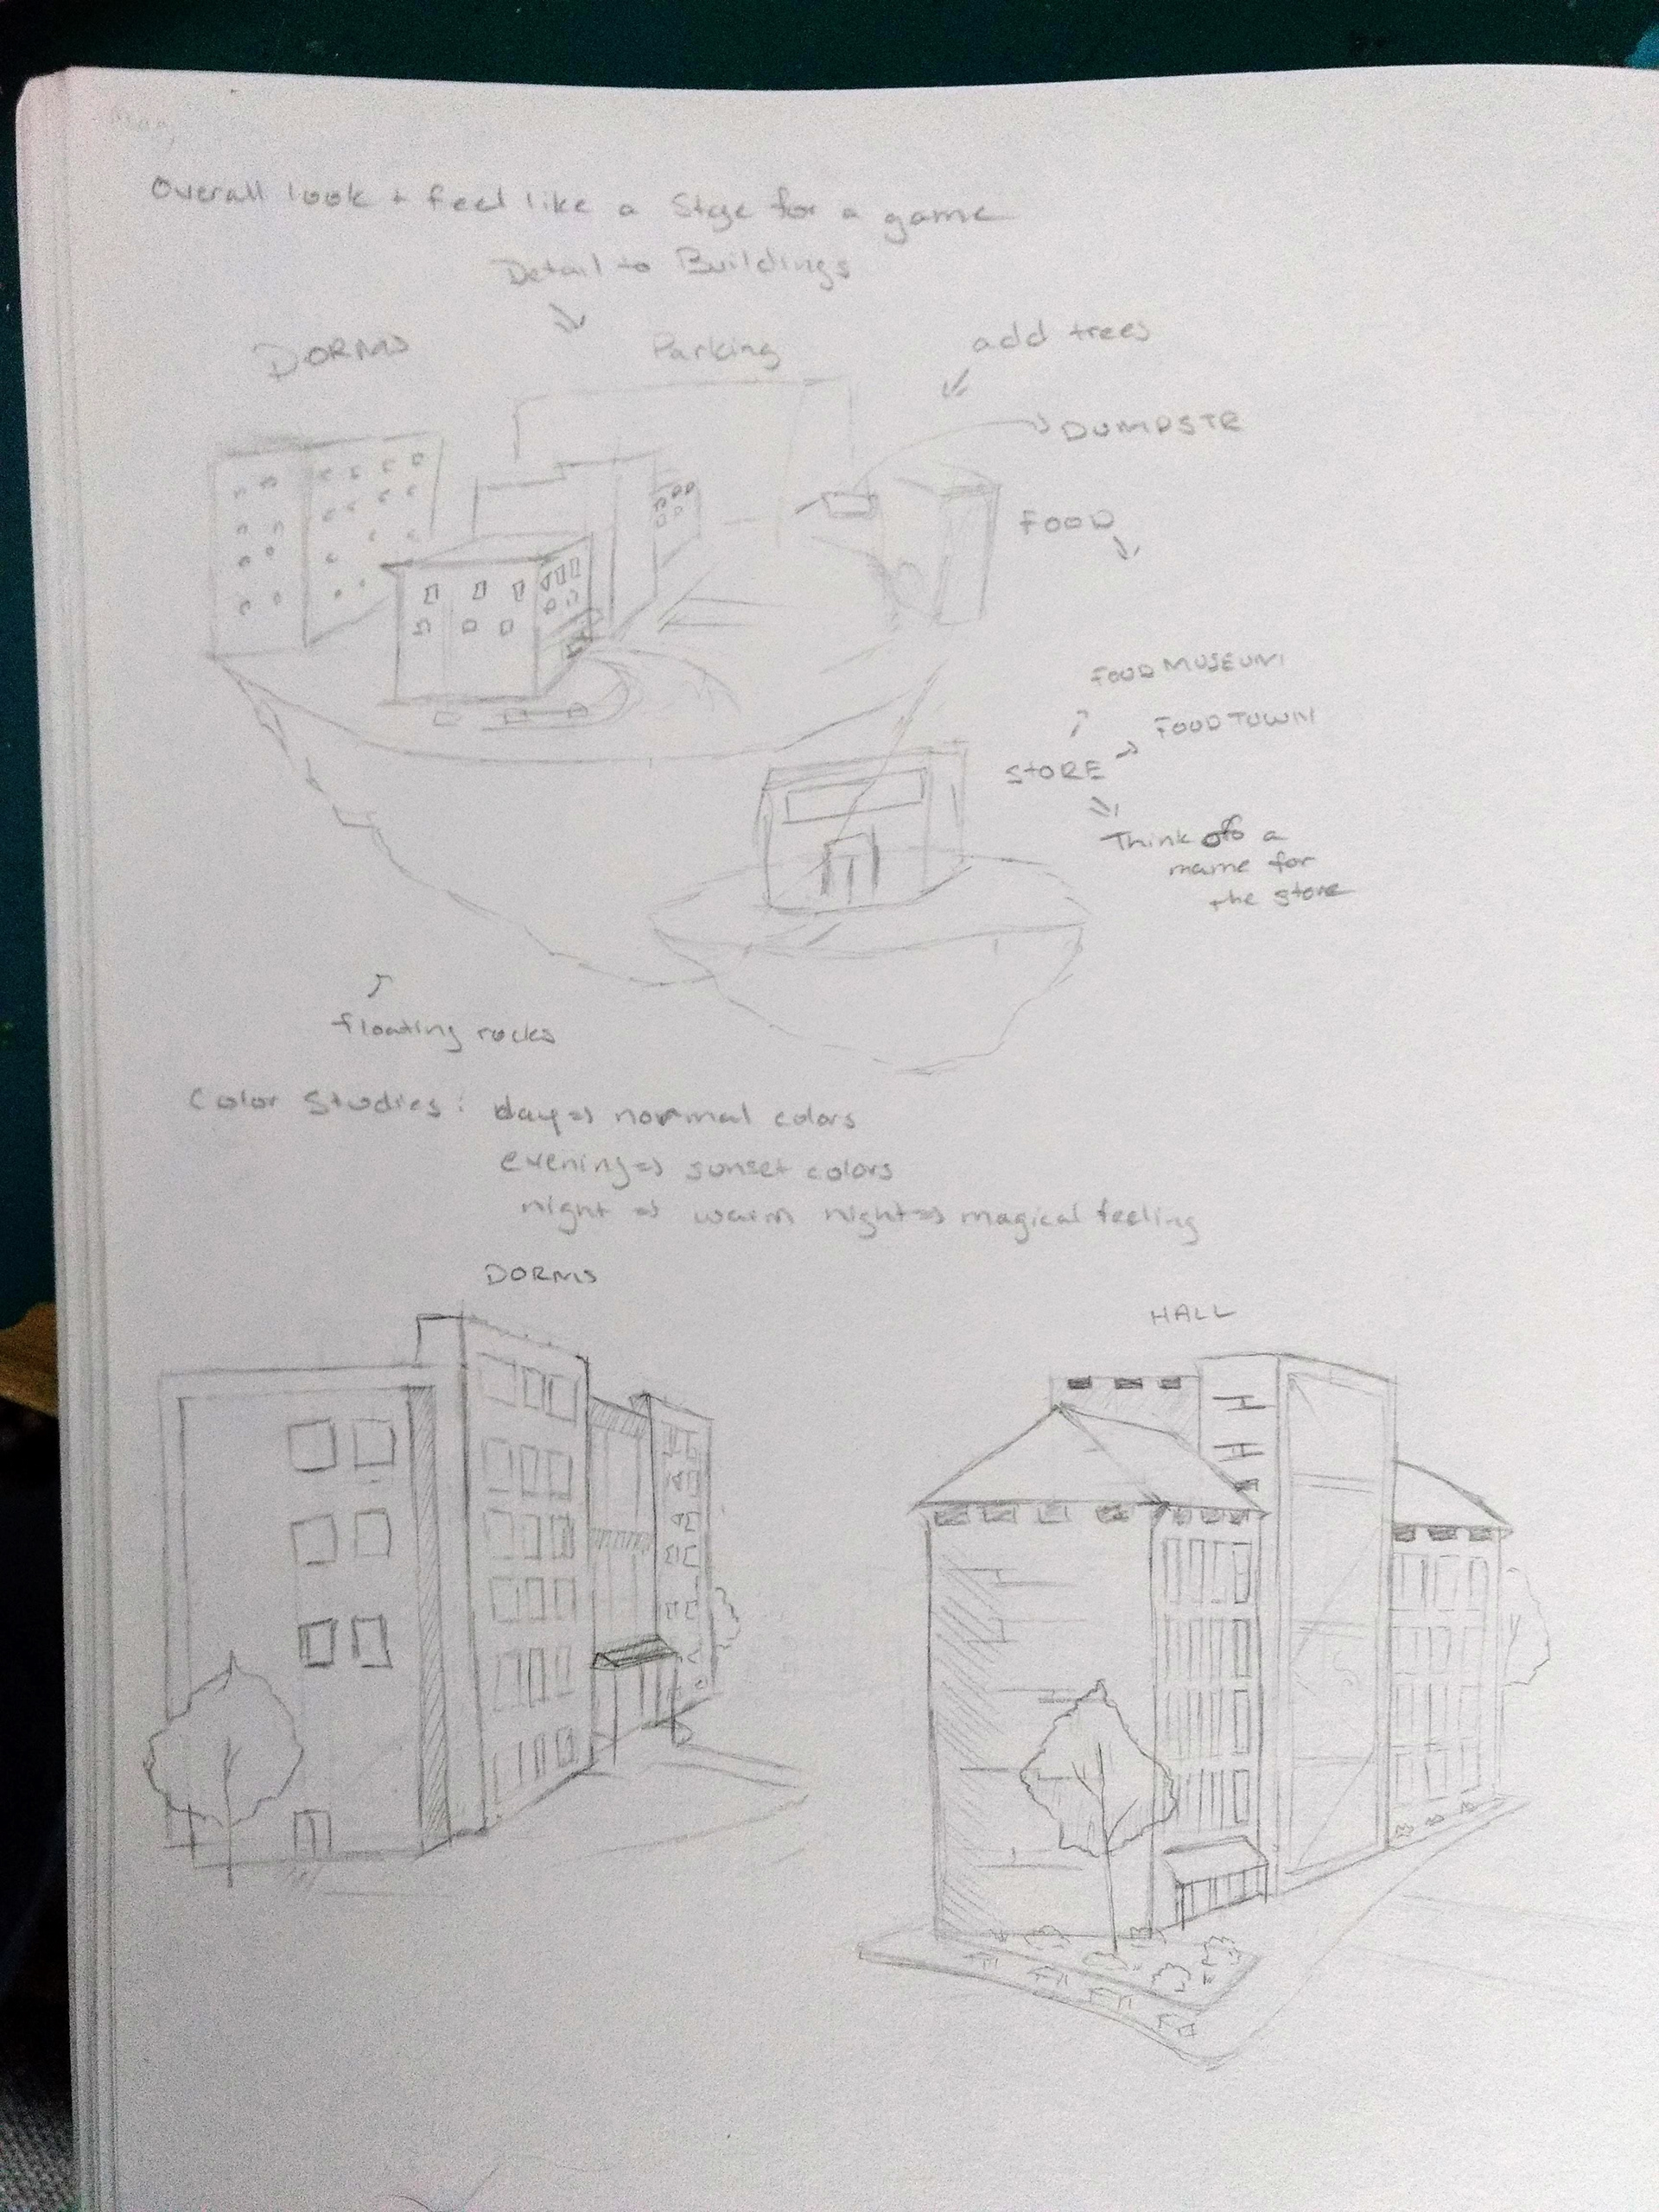 Map,
Overall look + feel like a Stage for a game
Detail to Buildings
DORMS
Parking
add trees
DUMPSTR
FOOD
FOOD MUSEUM
FOOD TOWN
STORE
Think of a
name for
the store
floating rocks
Color Studies: day => normal colors
evening => sunset colors
night => warm night => magical feeling
DORMS
HALL